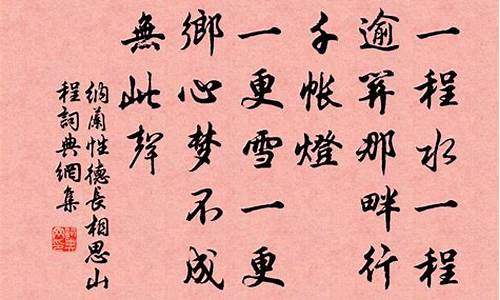 一程水一程
逾關那畔行
千帳燈
一更雪一更
鄉心梦不成
無此聲
納蘭性德長相思山
程詞典網集